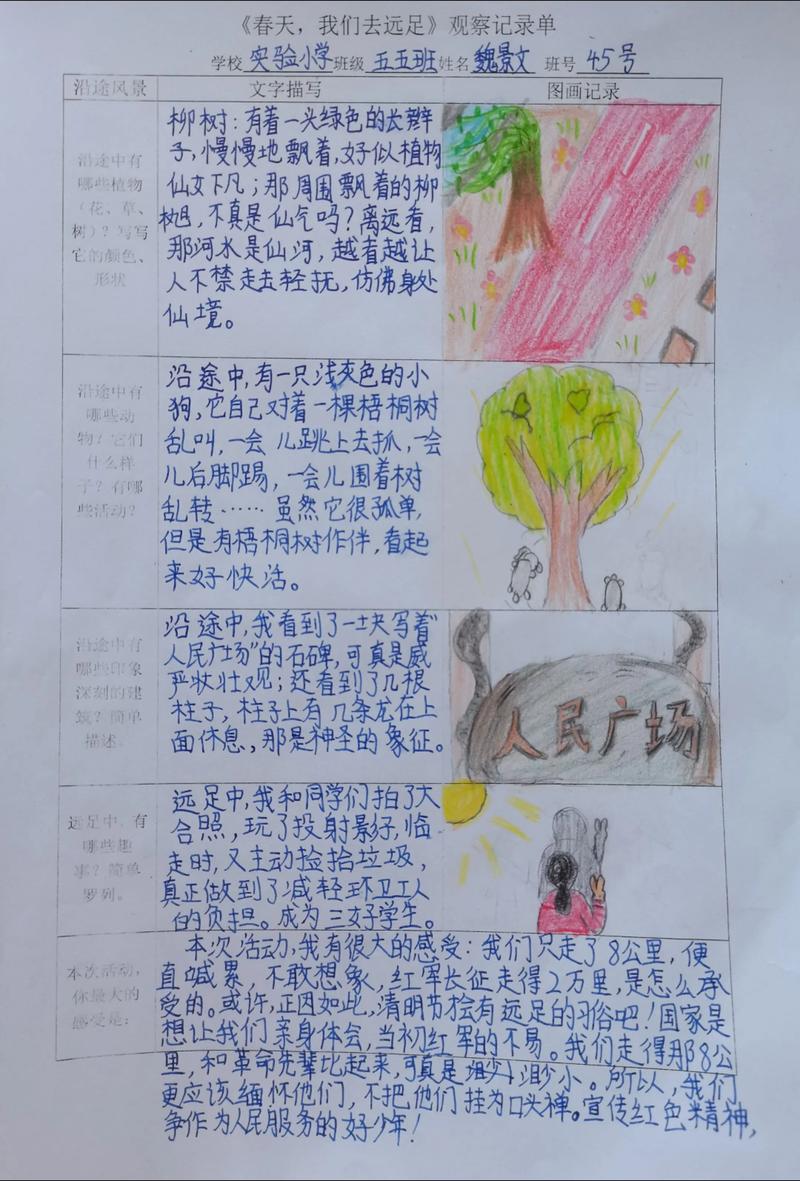 《春天，我们去远足》观察记录单
学校 实验小学 班级 五五班 姓名 魏景文 班号 45号
沿途风景 文字描写 图画记录
沿途中有
哪些植物
（花、草、
树）？写写
它的颜色、
形状
柳树：有着一头绿色的长辫
子，慢慢地飘着，好似植物
仙女下凡；那周围飘着的柳
絮，不真是仙气吗？离远看，
那河水是仙河，越看越让
人不禁走去轻抚，仿佛身处
仙境。
沿途中有
哪些动
物？它们
什么样
子？有哪
些活动？
沿途中，有一只浅灰色的小
狗，它自己对着一棵梧桐树
乱叫，一会儿跳上去抓，一会
儿后脚踢，一会儿围着树
乱转……虽然它很孤单，
但是有梧桐树作伴，看起
来好快活。
沿途中有
哪些印象
深刻的建
筑？简单
描述。
沿途中，我看到了一块写着“
人民广场”的石碑，可真是威
严壮观；还看到了几根
柱子，柱子上有几条龙在上
面休息，那是神圣的象征。
人民广场
远足中，有
哪些趣
事？简单
罗列。
远足中，我和同学们拍了大
合照，玩了投射影子，临
走时，又主动捡拾垃圾，
真正做到了减轻环卫工人
的负担。成为三好学生。
本次活动，
你最大的
感受是：
本次活动，我有很大的感受：我们只走了8公里，便
直喊累，不敢想象，红军长征走得2万里，是怎么承
受的。或许，正因如此，清明节才会有远足的习俗吧！国家是
想让我们亲身体会，当初红军的不易。我们走得那8公
里，和革命先辈比起来，可真是渺小。所以，我们
更应该缅怀他们，不把他们挂为口头禅。宣传红色精神，
争作为人民服务的好少年！